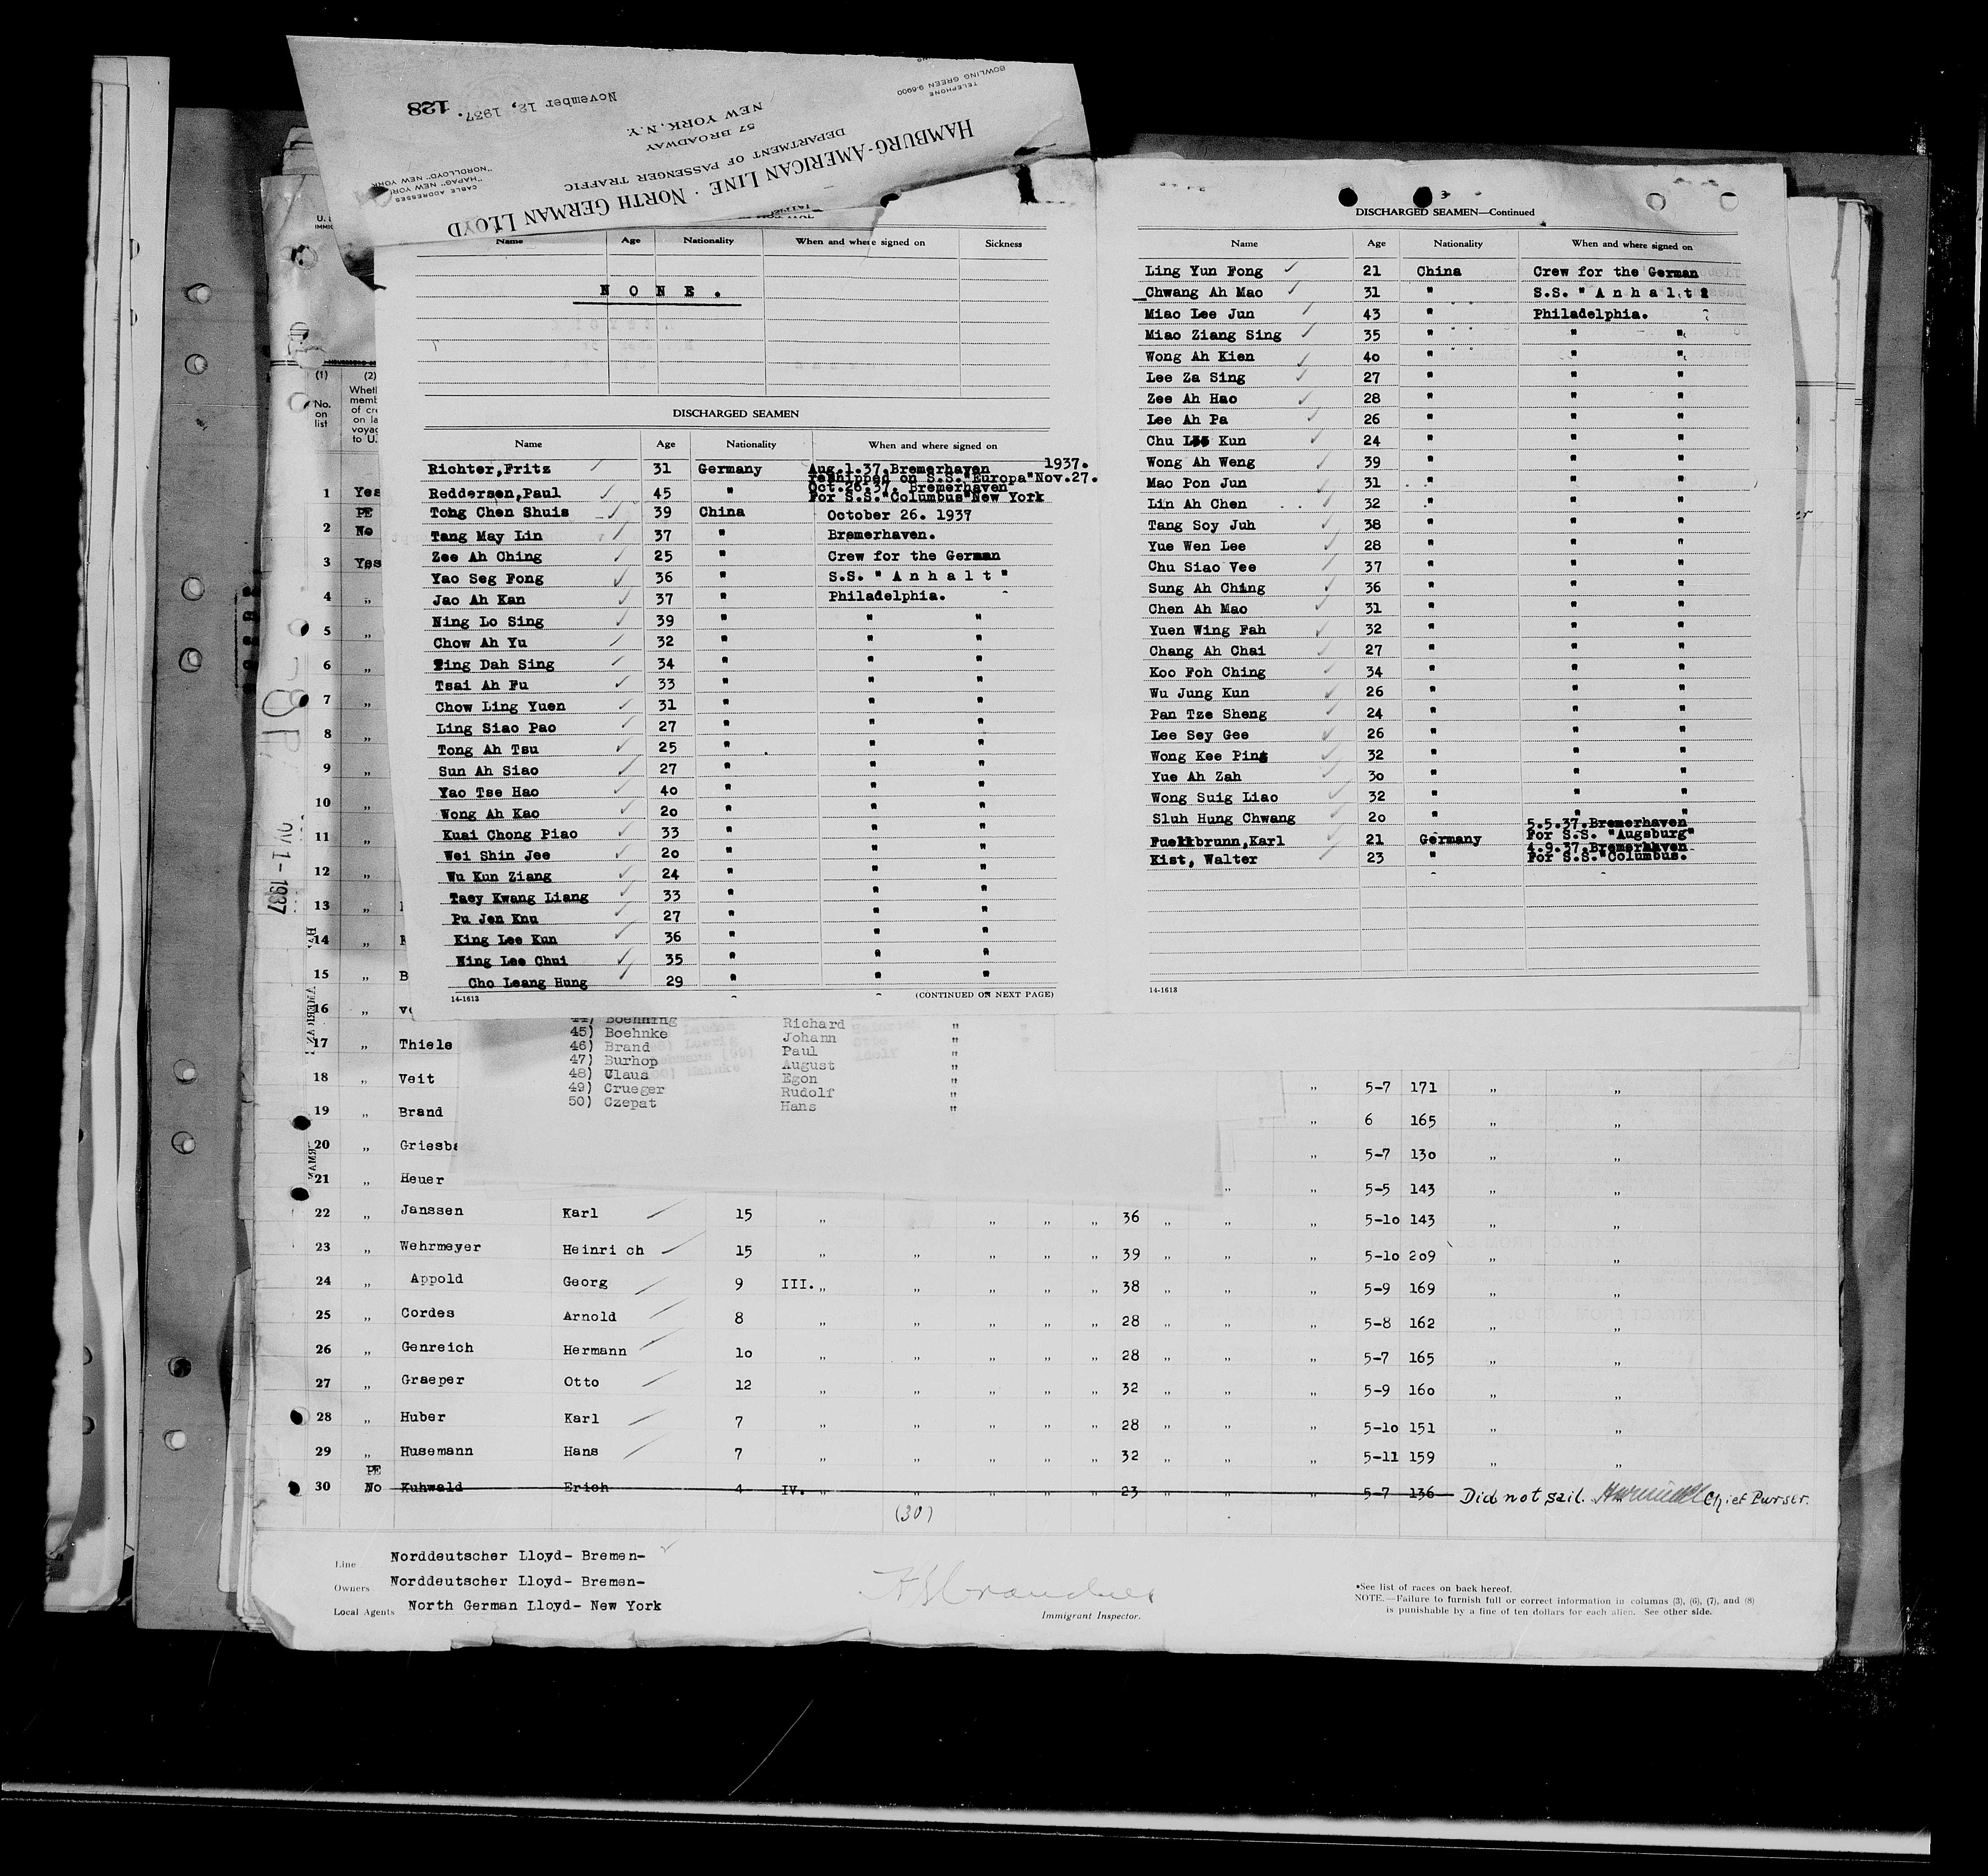 HAMBURG-AMERICAN LINE · NORTH GERMAN LLOYD
DEPARTMENT OF PASSENGER TRAFFIC
57 BROADWAY
NEW YORK, N.Y.
TELEPHONE
BOWLING GREEN 9-6900
CABLE ADDRESSES
"HAPAG" NEW YORK
"NORDLLOYD" NEW YORK
November 12, 1937.
128
Name Age Nationality When and where signed on Sickness
N O N E .
DISCHARGED SEAMEN
Name Age Nationality When and where signed on
Richter,Fritz 31 Germany Aug.1.37.Bremerhaven 1937.
reshipped on S.S."Europa"Nov.27.
Reddersen,Paul 45 " Oct.26.37. Bremerhaven
For S.S."Columbus"New York
Tong Chen Shuis 39 China October 26. 1937
Tang May Lin 37 " Bremerhaven.
Zee Ah Ching 25 " Crew for the German
Yao Seg Fong 36 " S.S. " A n h a l t "
Jao Ah Kan 37 " Philadelphia.
Ning Lo Sing 39 " " "
Chow Ah Yu 32 " " "
Ting Dah Sing 34 " " "
Tsai Ah Fu 33 " " "
Chow Ling Yuen 31 " " "
Ling Siao Pao 27 " " "
Tong Ah Tsu 25 " " "
Sun Ah Siao 27 " " "
Yao Tse Hao 40 " " "
Wong Ah Kao 20 " " "
Kuai Chong Piao 33 " " "
Wei Shin Jee 20 " " "
Wu Kun Ziang 24 " " "
Taey Kwang Liang 33 " " "
Pu Jen Knu 27 " " "
King Lee Kun 36 " " "
Ning Lee Chui 35 " " "
Cho Leang Hung 29 " " "
14-1613 (CONTINUED ON NEXT PAGE)
3
DISCHARGED SEAMEN—Continued
Name Age Nationality When and where signed on
Ling Yun Fong 21 China Crew for the German
Chwang Ah Mao 31 " S.S. " A n h a l t "
Miao Lee Jun 43 " Philadelphia.
Miao Ziang Sing 35 " " "
Wong Ah Kien 40 " " "
Lee Za Sing 27 " " "
Zee Ah Hao 28 " " "
Lee Ah Pa 26 " " "
Chu Kun 24 " " "
Wong Ah Weng 39 " " "
Mao Pon Jun 31 " " "
Lin Ah Chen 32 " " "
Tang Soy Juh 38 " " "
Yue Wen Lee 28 " " "
Chu Siao Vee 37 " " "
Sung Ah Ching 36 " " "
Chen Ah Mao 31 " " "
Yuen Wing Fah 32 " " "
Chang Ah Chai 27 " " "
Koo Foh Ching 34 " " "
Wu Jung Kun 26 " " "
Pan Tze Sheng 24 " " "
Lee Sey Gee 26 " " "
Wong Kee Ping 32 " " "
Yue Ah Zah 30 " " "
Wong Suig Liao 32 " " "
Sluh Hung Chwang 20 " " "
Fuellbrunn,Karl 21 Germany 5.5.37.Bremerhaven
For S.S. "Augsburg"
Kist, Walter 23 " 4.9.37.Bremerhaven
For S.S."Columbus.
14-1613
(1) (2)
No. on list
1 Yes
PE
2 No
3 Yes
4 "
5 "
6 "
7 "
8 "
9 "
10 "
11 "
12 "
13 "
14 "
15 " B
16 "
44) Boehning Richard "
45) Boehnke Johann "
46) Brand Paul "
47) Burhop August "
48) Claus Egon "
49) Crueger Rudolf "
50) Czepat Hans "
17 " Thiele
18 " Veit " 5-7 171 " "
19 " Brand " 6 165 " "
20 " Griesba " 5-7 130 " "
21 " Heuer " " 5-5 143 " "
22 " Janssen Karl 15 " " " " " 36 " " " 5-10 143 " "
23 " Wehrmeyer Heinri ch 15 " " " " " 39 " " " 5-10 209 " "
24 " Appold Georg 9 III." " " " " 38 " " " 5-9 169 " "
25 " Cordes Arnold 8 " " " " " 28 " " " 5-8 162 " "
26 " Genreich Hermann 10 " " " " " 28 " " " 5-7 165 " "
27 " Graeper Otto 12 " " " " " 32 " " " 5-9 160 " "
28 " Huber Karl 7 " " " " " 28 " " " 5-10 151 " "
29 " Husemann Hans 7 " " " " " 32 " " " 5-11 159 " "
PE
30 No Kuhwald Erich 4 IV. " " " " " 23 " " " 5-7 136 Did not sail. Chief Purser.
(30)
Line Norddeutscher Lloyd- Bremen-
Owners Norddeutscher Lloyd- Bremen-
Local Agents North German Lloyd- New York
Immigrant Inspector.
*See list of races on back hereof.
NOTE.—Failure to furnish full or correct information in columns (3), (6), (7), and (8)
is punishable by a fine of ten dollars for each alien. See other side.